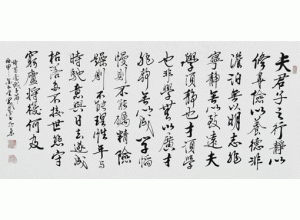 夫君子之行靜以
修身儉以養德非
澹泊無以明志非
寧靜無以致遠夫
學須靜也才須學
也非學無以廣才
非靜無以成學慆
慢則不能研精險
躁則不能理性年与
時馳意與日去遂成
枯落多不接世悲守
窮廬將復何及